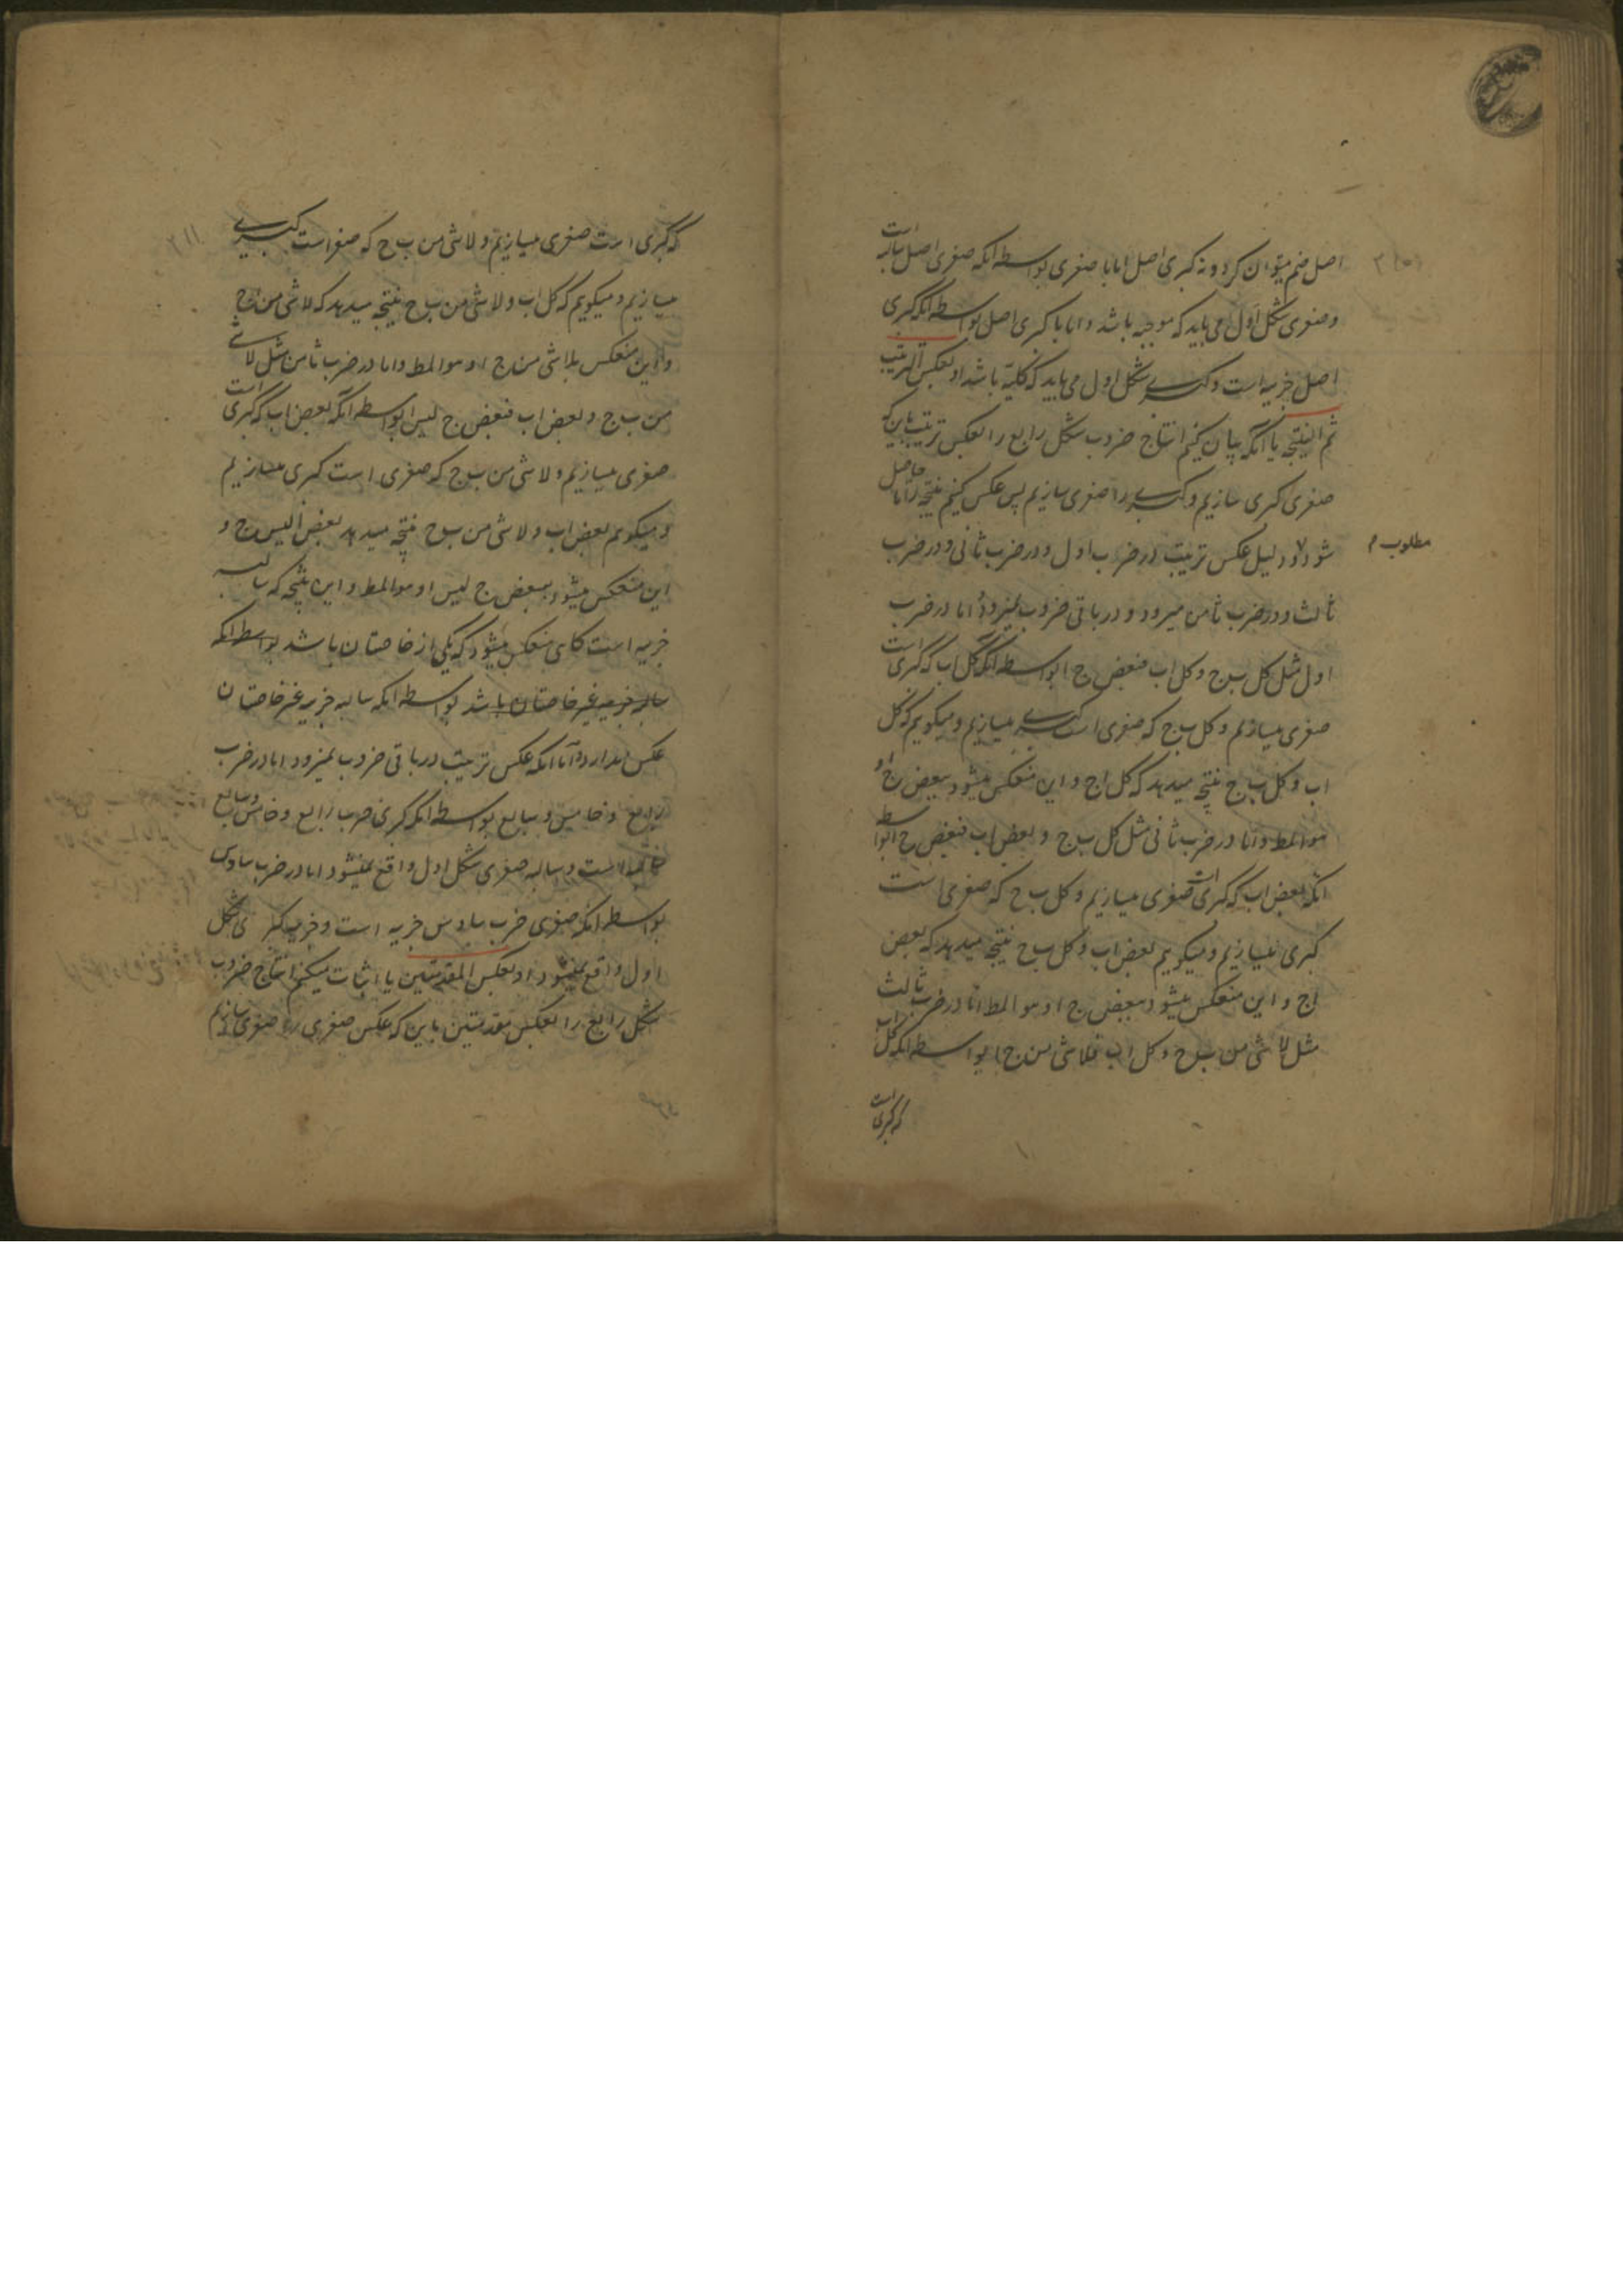 اصل ضم میتوان کرد و نه کبری اصل اما با صغری بواسطه انکه صغری اصل سالبه است
و صغری شکل اول می باید که موجبه باشد و اما با کبری اصل بواسطه انکه کبری
اصل جزییه است و کبرے شکل اول می باید که کلیه باشد او بعکس الترتیب
ثم النتیجه یا انکه بیان کنیم انتاج ضروب شکل رابع را بعکس ترتیب باین که
صغری کبری سازیم و کبرے را صغری سازیم پس عکس کنیم نتیجه را تا حاصل
شود و دلیل عکس ترتیب در ضرب اول و در ضرب ثانی و در ضرب
مطلوب م
ثالث و در ضرب ثامن میرود و در باقی ضروب نمیرود اما در ضرب
اول مثل کل ب ج و کل ا ب فبعض ج ا بواسطه انکه کل ا ب که کبری است
صغری میسازیم و کل ب ج که صغری است کبرے میسازیم و میکویم که کل
ا ب و کل ب ج نتیجه میدهد که کل ا ج و این منعکس میشود ببعض ج ا و
هو المط و اما در ضرب ثانی مثل کل ب ج و بعض ا ب فبعض ج ا بواسطه
انکه بعض ا ب که کبری است صغری میسازیم و کل ب ج که صغری است
کبری میسازیم و میکویم بعض ا ب و کل ب ج نتیجه میدهد که بعض
ا ج و این منعکس میشود ببعض ج ا و هو المط اما در ضرب ثالث
مثل لا شی من ب ج و کل ا ب فلا شی من ج ا بواسطه انکه کل ا ب
که کبری است
که کبری است صغری میسازیم و لا شی من ب ج که صغر است کبرے
میسازیم و میکویم که کل ا ب و لا شی من ب ج نتیجه میدهد که لا شی من ا ج
و این منعکس بلا شی من ج ا و هو المط و اما در ضرب ثامن مثل لا شے
من ب ج و بعض ا ب فبعض ج لیس ا بواسطه انکه بعض ا ب که کبری است
صغری میسازیم و لا شی من ب ج که صغری است کبری میسازیم
و میکویم بعض ا ب و لا شی من ب ج نتیجه میدهد بعض ا لیس ج و
این منعکس میشود ببعض ج لیس ا و هو المط و این نتیجه که سالبه
جزییه است کاهی منعکس میشود که یکی از خاصتان باشد بواسطه انکه
سالبه جزییه غیر خاصتان باشد بواسطه انکه سالبه جزییه غیر خاصتان
عکس ندارد و اما انکه عکس ترتیب در باقی ضروب نمیرود اما در ضرب
رابع و خامس و سابع بواسطه انکه کبری ضرب رابع و خامس و سابع
سالبه است و سالبه صغری شکل اول واقع نمیشود اما در ضرب سادس
بواسطه انکه صغری ضرب سادس جزییه است و جزییه کبری شکل
اول واقع نمیشود او بعکس المقدمتین یا اثبات میکنم انتاج ضروب
شکل رابع را بعکس مقدمتین باین که عکس صغری را صغری سازیم